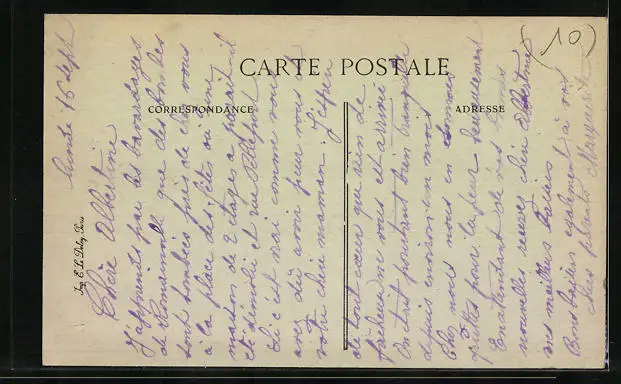 CARTE POSTALE
CORRESPONDANCE
ADRESSE
Imp. E. Le Deley, Paris
(10)
Lundi 16 Sept
Chère Albertine
J'apprends par les bavardages
de que des bombes
sont tombées près de chez vous
à la place des fêtes où une
maison de 2 étages a paraît-il
été démolie et rue Rébeval
Si c'est vrai comme vous
avez dû avoir peur vous et
votre chère maman. J'espère
de tout cœur que rien de
fâcheux ne vous est arrivé
On était pourtant bien tranquille
depuis environ un mois
Chez nous nous en sommes
quittes pour la peur seulement
En attendant de vos bonnes
nouvelles recevez chère Albertine
mes meilleurs baisers
Bons baisers également à vos
chers parents Marguerite